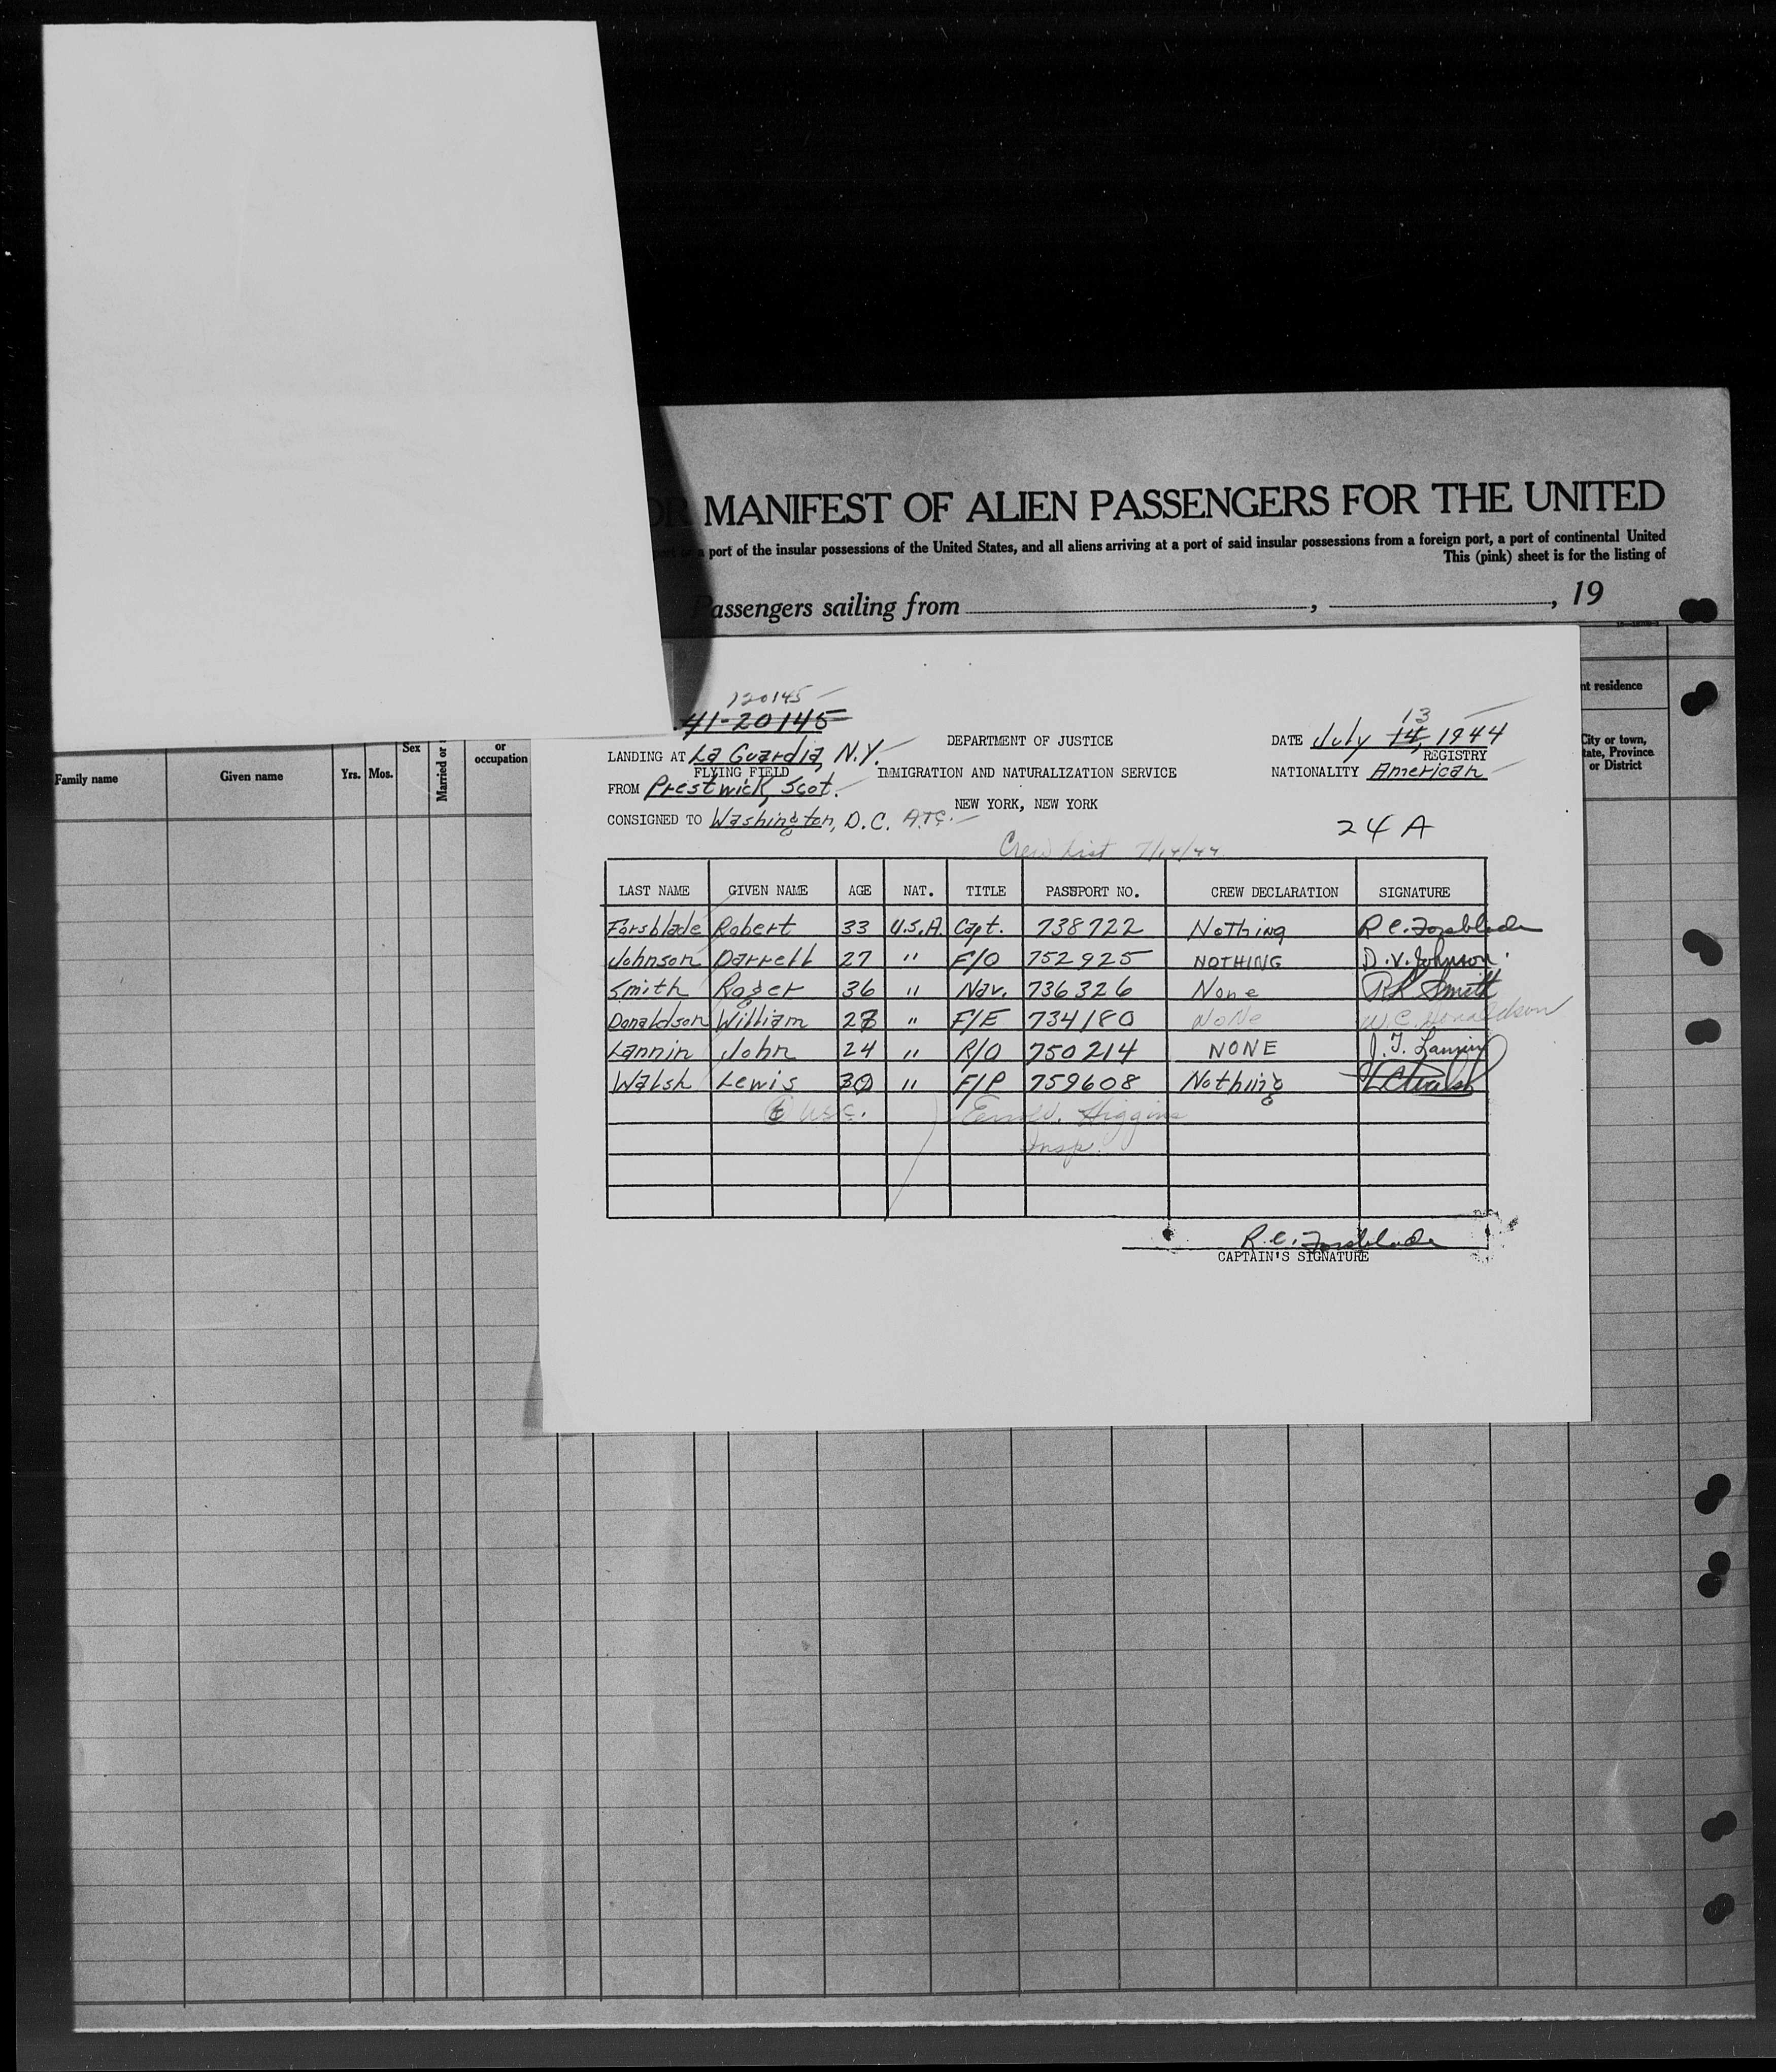 MANIFEST OF ALIEN PASSENGERS FOR THE UNITED
a port of the insular possessions of the United States, and all aliens arriving at a port of said insular possessions from a foreign port, a port of continental United
This (pink) sheet is for the listing of
Passengers sailing from , , 19
nt residence
City or town,
tate, Province
or District
Family name Given name Yrs. Mos. Sex Married or or occupation
120145
41-20145
LANDING AT La Guardia, N.Y. DEPARTMENT OF JUSTICE DATE July 14, 13 1944
FLYING FIELD IMMIGRATION AND NATURALIZATION SERVICE REGISTRY
NATIONALITY American
FROM Prestwick, Scot. NEW YORK, NEW YORK
CONSIGNED TO Washington, D.C. A.T.C. 24 A
Crew List 7/14/44
LAST NAME GIVEN NAME AGE NAT. TITLE PASSPORT NO. CREW DECLARATION SIGNATURE
Forsblade Robert 33 U.S.A. Capt. 738722 Nothing R C. Forsblade
Johnson Darrell 27 " F/O 752925 NOTHING D.V. Johnson
Smith Roger 36 " Nav. 736326 None RK Smith
Donaldson William 28 " F/E 734180 NoNe W.C. Donaldson
Lannin John 24 " R/O 750214 NONE J.T. Lannin
Walsh Lewis 30 " F/P 759608 Nothing LCWalsh
6 USC. Higgins
Insp.
R.C. Forsblade
CAPTAIN'S SIGNATURE